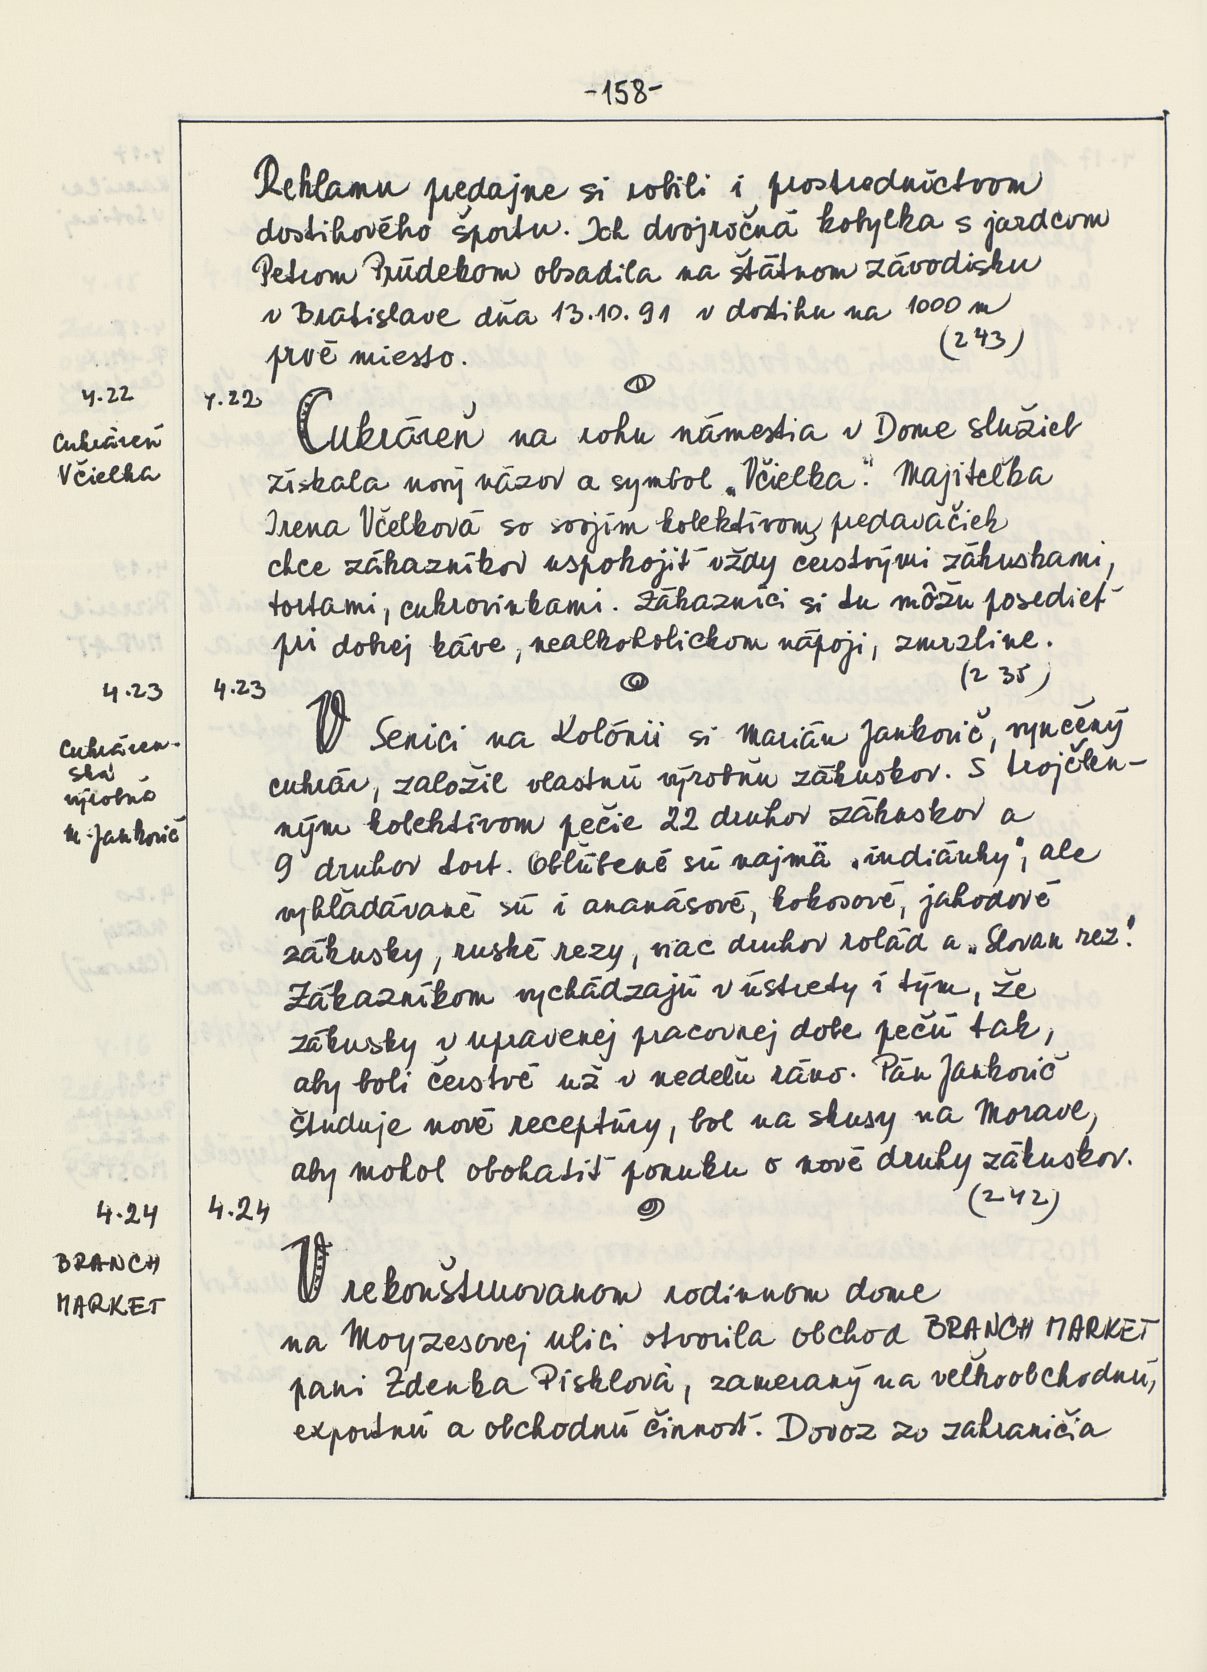 -158-
Reklamu predajne si robili i prostredníctvom
dostihového športu. Ich dvojročná kobylka s jazdcom
Petrom Průdekom obsadila na štátnom závodisku
v Bratislave dňa 13.10.91 v dostihu na 1000 m
prvé miesto.
(243)
4.22
Cukráreň
Včielka
4.22
Cukráreň na rohu námestia v Dome služieb
získala nový názov a symbol „Včielka". Majiteľka
Irena Včelková so svojím kolektívom predavačiek
chce zákazníkov uspokojiť vždy čerstvými zákuskami,
tortami, cukrovinkami. Zákazníci si tu môžu posedieť
pri dobrej káve, nealkoholickom nápoji, zmrzline.
(235)
4.23
Cukráren-
ská
výrobňa
M. Jankovič
4.23
V Senici na Kolónii si Marián Jankovič, vyučený
cukrár, založil vlastnú výrobňu zákuskov. S trojčlen-
ným kolektívom pečie 22 druhov zákuskov a
9 druhov tort. Obľúbené sú najmä „indiánky", ale
vyhľadávané sú i ananásové, kokosové, jahodové
zákusky, ruské rezy, viac druhov rolád a „Slovan rez".
Zákazníkom vychádzajú v ústrety i tým, že
zákusky v upravenej pracovnej dobe pečú tak,
aby boli čerstvé už v nedeľu ráno. Pán Jankovič
študuje nové receptúry, bol na skusy na Morave,
aby mohol obohatiť ponuku o nové druhy zákuskov.
(242)
4.24
BRANCH
MARKET
4.24
V rekonštruovanom rodinnom dome
na Moyzesovej ulici otvorila obchod BRANCH MARKET
pani Zdenka Pisklová, zameraný na veľkoobchodnú,
exportnú a obchodnú činnosť. Dovoz zo zahraničia